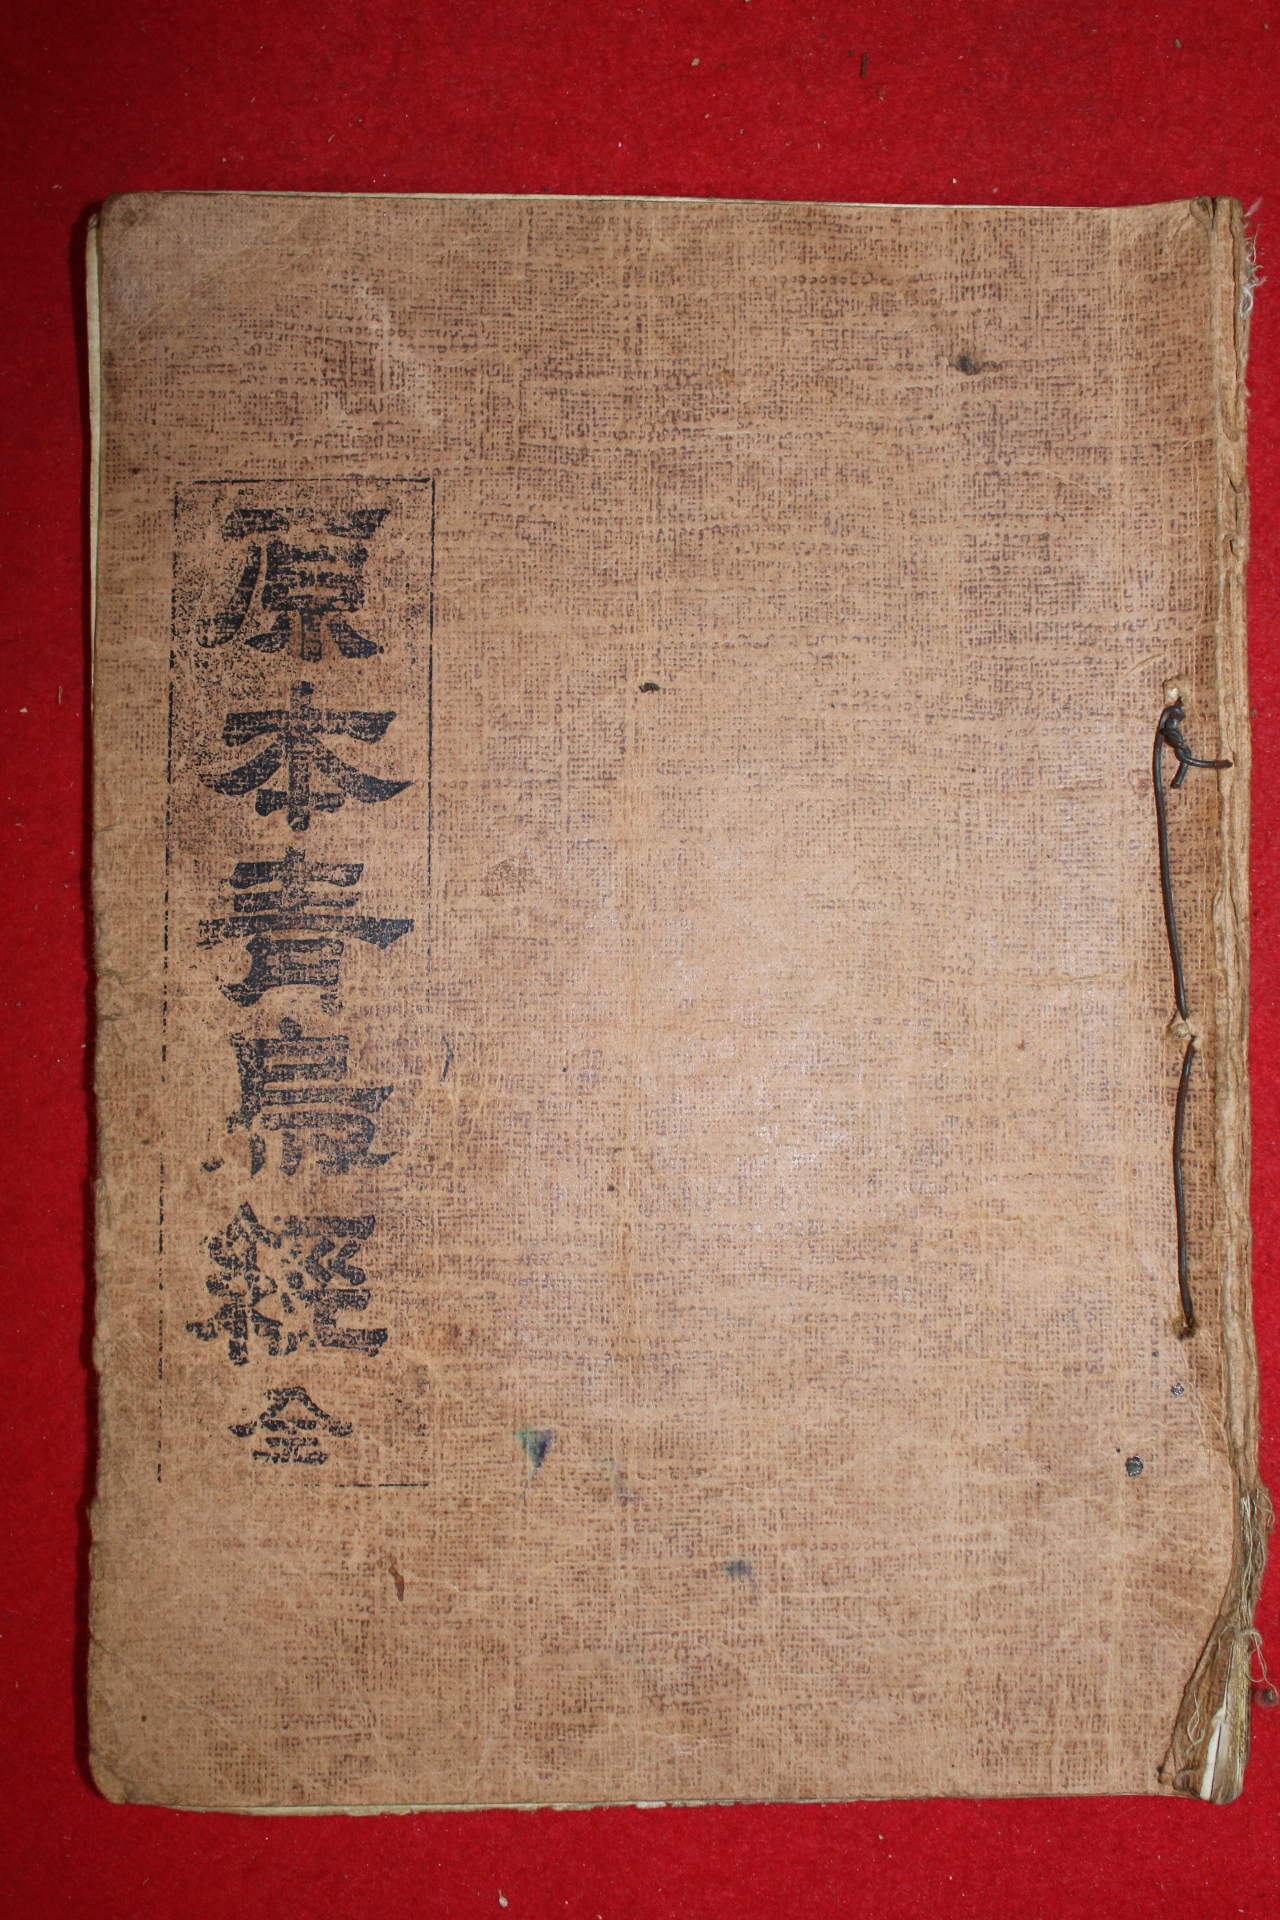 原本靑烏經 全